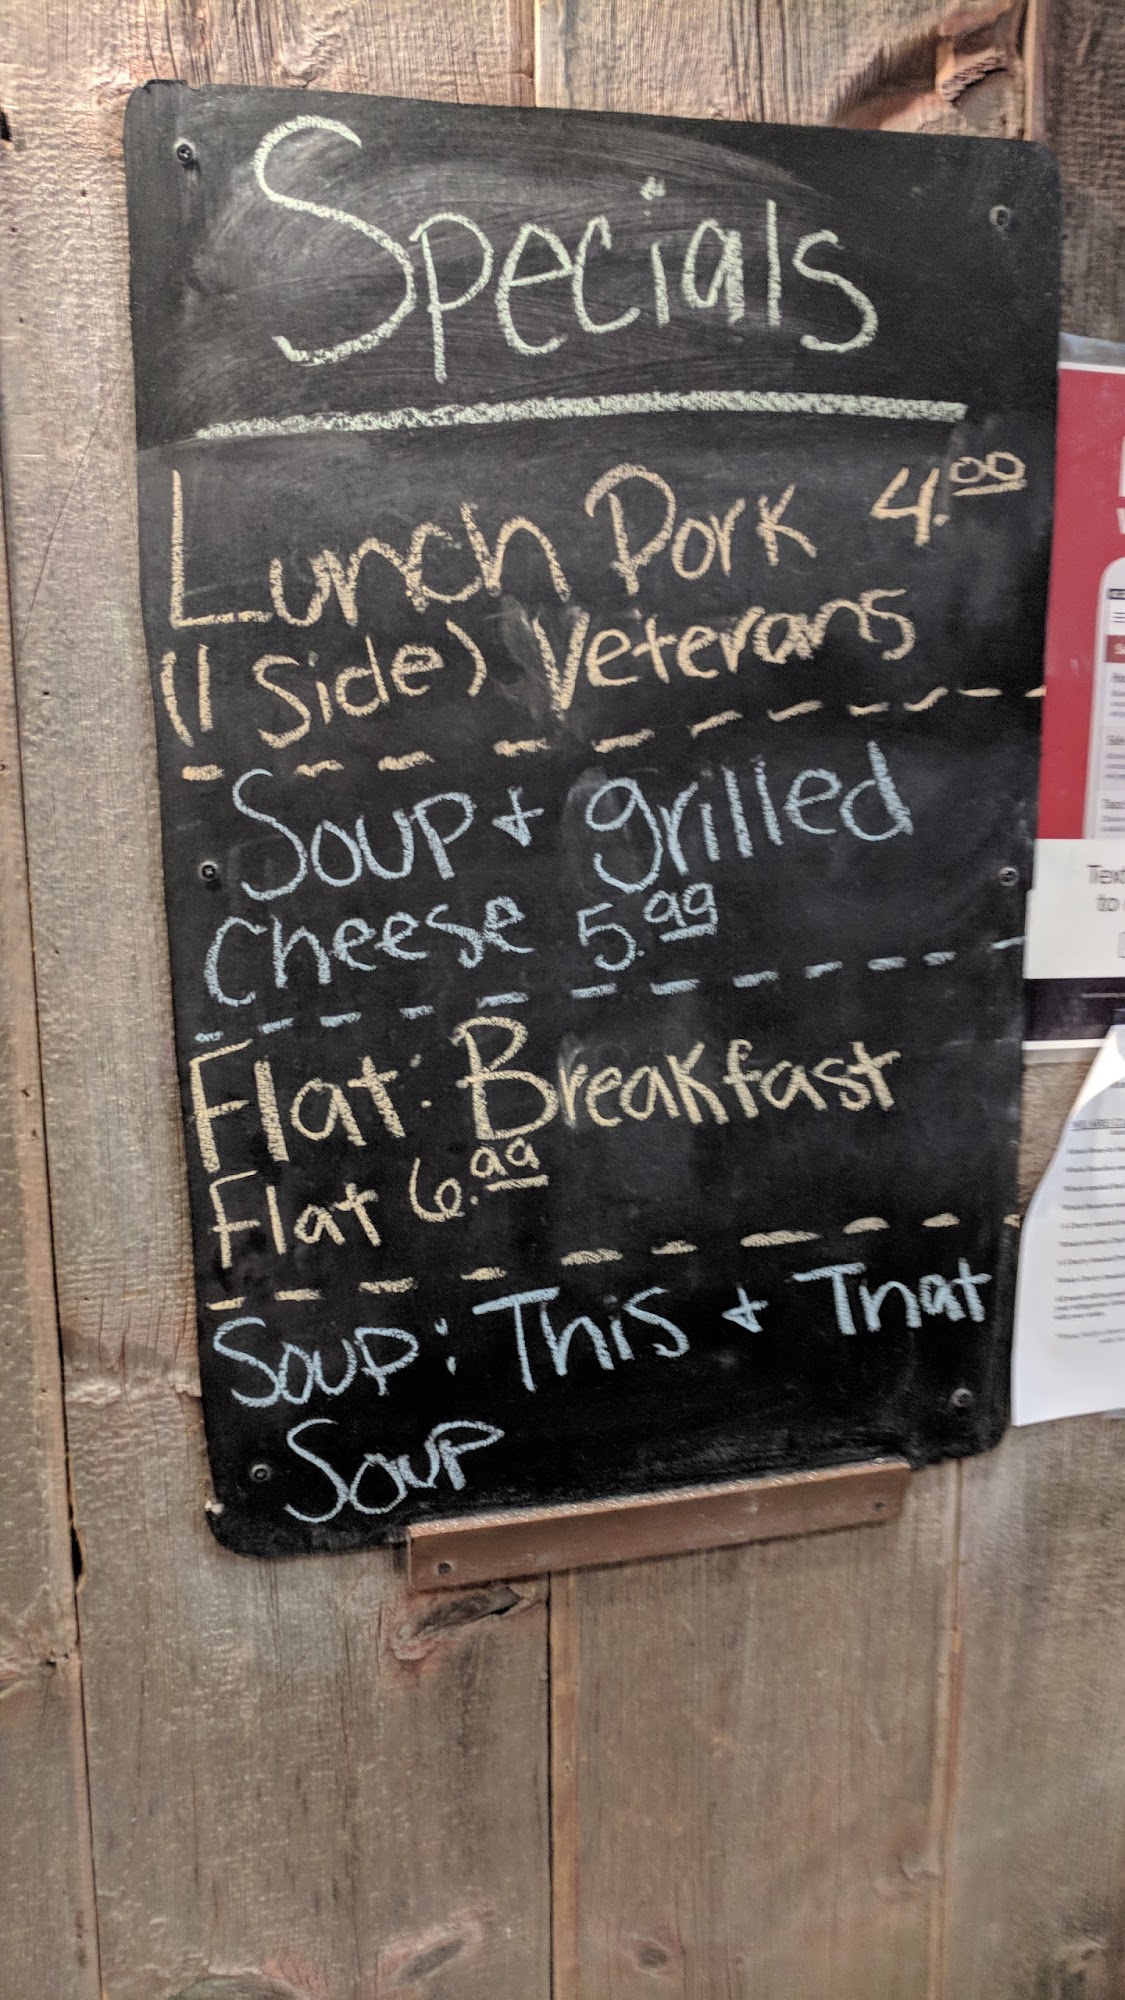 Specials
Lunch Pork 4.00
(1 Side) Veterans
Soup + grilled
Cheese 5.99
Flat: Breakfast
Flat 6.99
Soup: This + That
Soup
Text
to